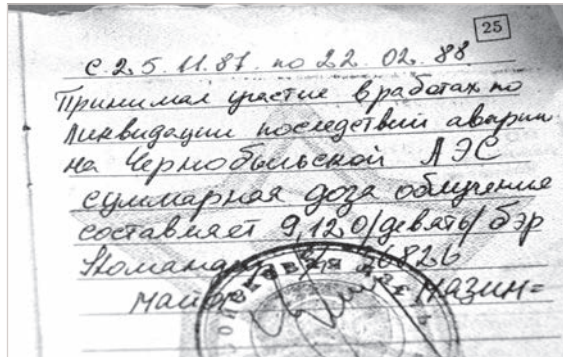 25
с 25.11.87. по 22.02.88
Принимал участие в работах по
ликвидации последствий аварии
на Чернобыльской АЭС
суммарная доза облучения
составляет 9,120/девять/ бэр
Командир 56826
майор МАЗИН=